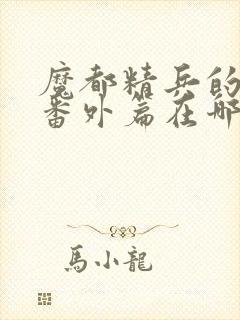 魔都精兵的
番外篇在哪
馬小龍